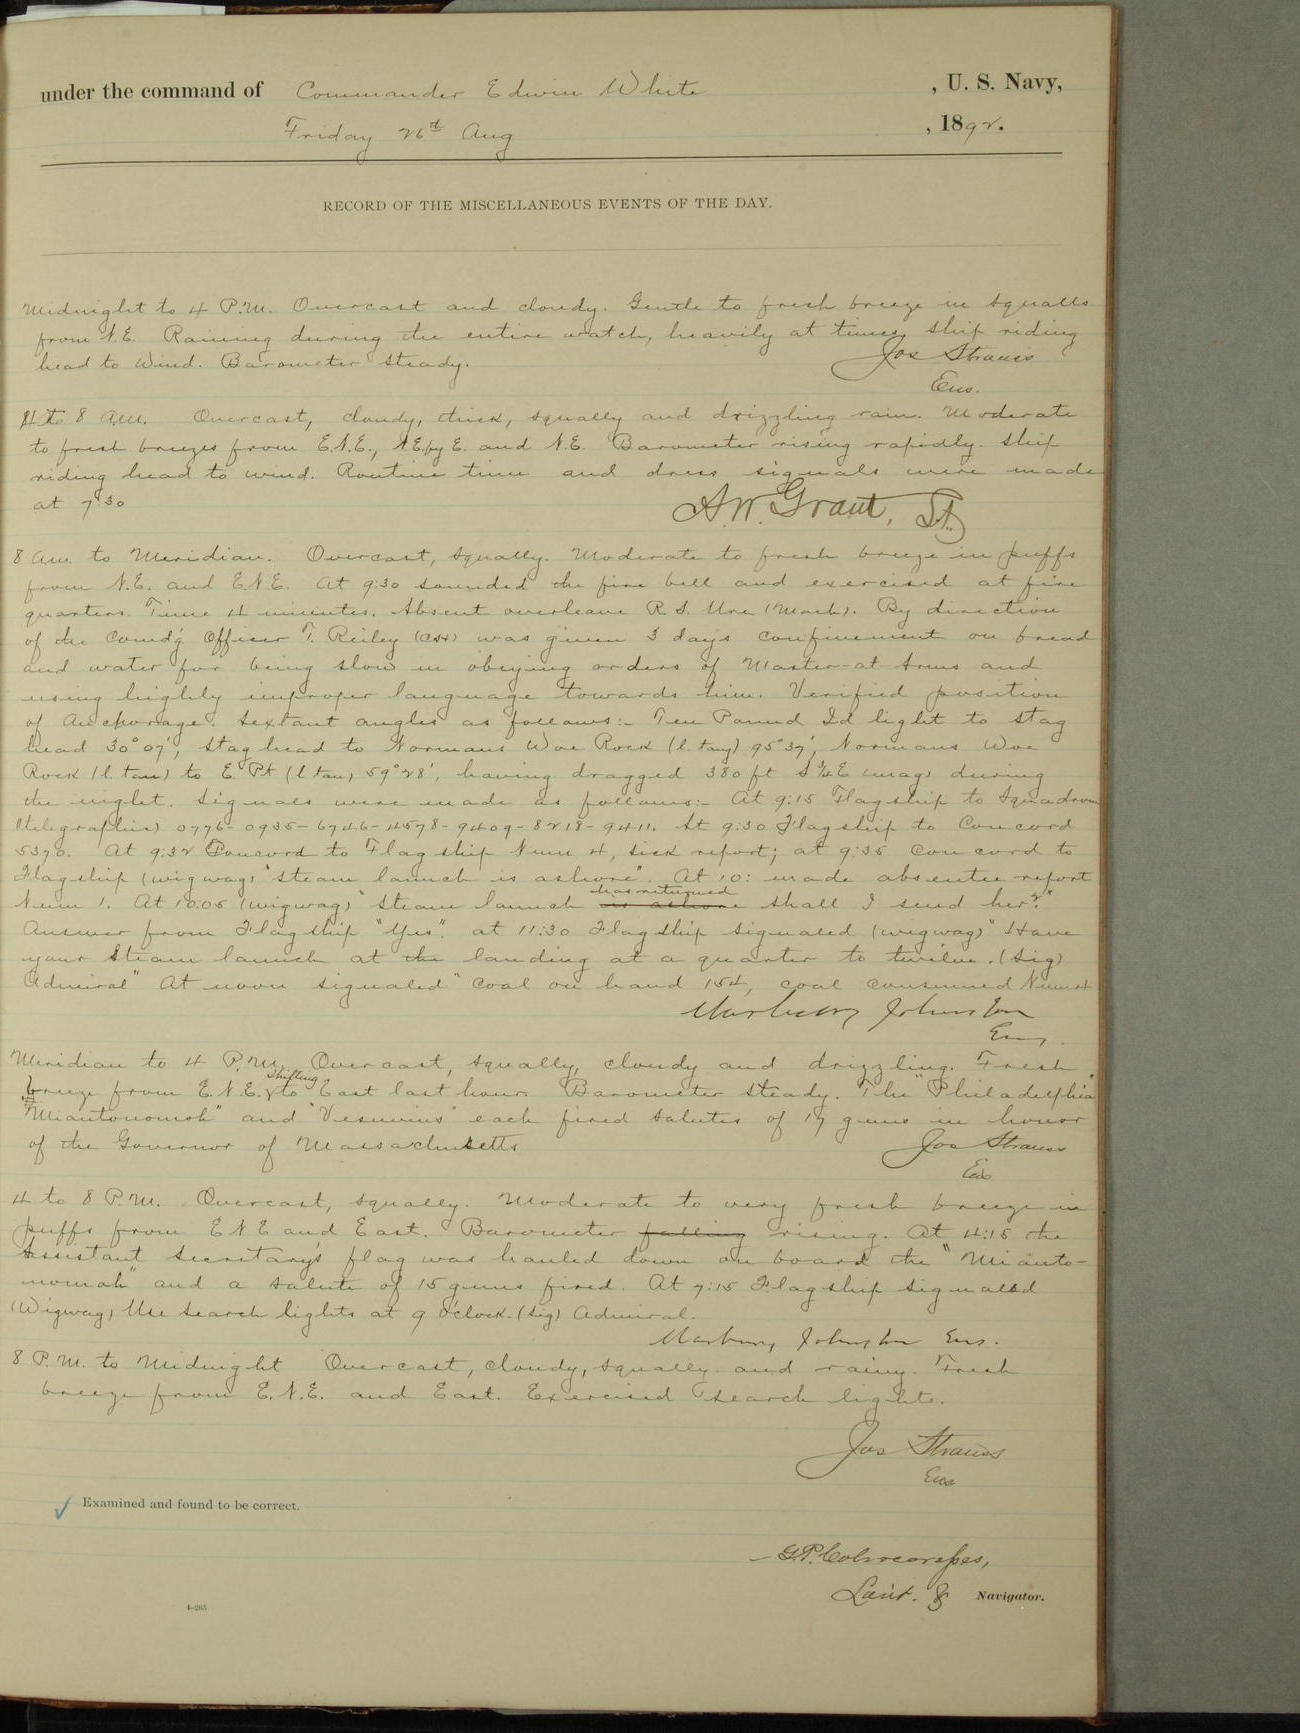 under the command of Commander Edwin White , U. S. Navy,
Friday 26th Aug , 1892.
RECORD OF THE MISCELLANEOUS EVENTS OF THE DAY.
Midnight to 4 P.M. Overcast and cloudy. Gentle to fresh breeze in squalls
from N.E. Raining during the entire watch, heavily at times, ship riding
head to wind. Barometer steady. Jos Strauss
Ens.
4 to 8 a.m. Overcast, cloudy, thick, squally and drizzling rain. Moderate
to fresh breezes from E.N.E., N.E. by E. and N.E. Barometer rising rapidly. Ship
riding head to wind. Routine time and dress signals were made
at 7:30 A.W. Grant, Lt.
8 a.m. to Meridian. Overcast, squally. Moderate to fresh breeze in puffs
from N.E. and E.N.E. At 9:30 sounded the fire bell and exercised at fire
quarters. Time 4 minutes. Absent overleave R. S. (Mach). By direction
of the Comdg Officer T. Reiley was given 3 days confinement on bread
and water for being slow in obeying orders of Master-at-Arms and
using highly improper language towards him. Verified position
of anchorage. Sextant angles as follows:- Ten Pound Id light to Stag
head 30° 07', Stag head to Normans Woe Rock (l. tang) 95° 37', Normans Woe
Rock (l. tan) to E. Pt (l tan) 59° 28', having dragged 380 ft S ¾ E (mag) during
the night. Signals were made as follows:- At 9:15 Flagship to Squadron
(telegraphic) 0776-0935-6746-4578-9409-8218-9411. At 9:30 Flagship to Concord
5370. At 9:32 Concord to Flagship Num 4, sick report; at 9:35 Concord to
Flagship (wigwag) "steam launch is ashore". At 10: made absentee report
Num 1. At 10:05 (wigwag) "Steam launch is ashore has returned shall I send her?"
Answer from Flagship "Yes". at 11:30 Flagship signaled (wigwag) "Have
your steam launch at the landing at a quarter to twelve. (Sig)
Admiral" At noon signaled "Coal on hand 154, coal consumed Num 4
Marbury Johnston
Ens.
Meridian to 4 P.M. Overcast, squally, cloudy and drizzling. Fresh
breeze from E.N.E. shifting to East last hour. Barometer steady. The "Philadelphia"
"Miantonomoh" and "Vesuvius" each fired salutes of 17 guns in honor
of the Governor of Massachusetts Jos Strauss
Ens
4 to 8 P.M. Overcast, squally. Moderate to very fresh breeze in
puffs from E N E and East. Barometer falling rising. At 4:15 the
Assistant Secretary's flag was hauled down on board the "Mianto-
nomoh" and a salute of 15 guns fired. At 7:15 Flagship signaled
(Wigwag) Use search lights at 9 o'clock. (Sig) Admiral.
Marbury Johnston Ens.
8 P.M. to Midnight Overcast, cloudy, squally and rainy. Fresh
breeze from E.N.E. and East. Exercised search lights.
Jos Strauss
Ens
Examined and found to be correct.
G.P. Colvocoresses,
Lieut. & Navigator.
4-265